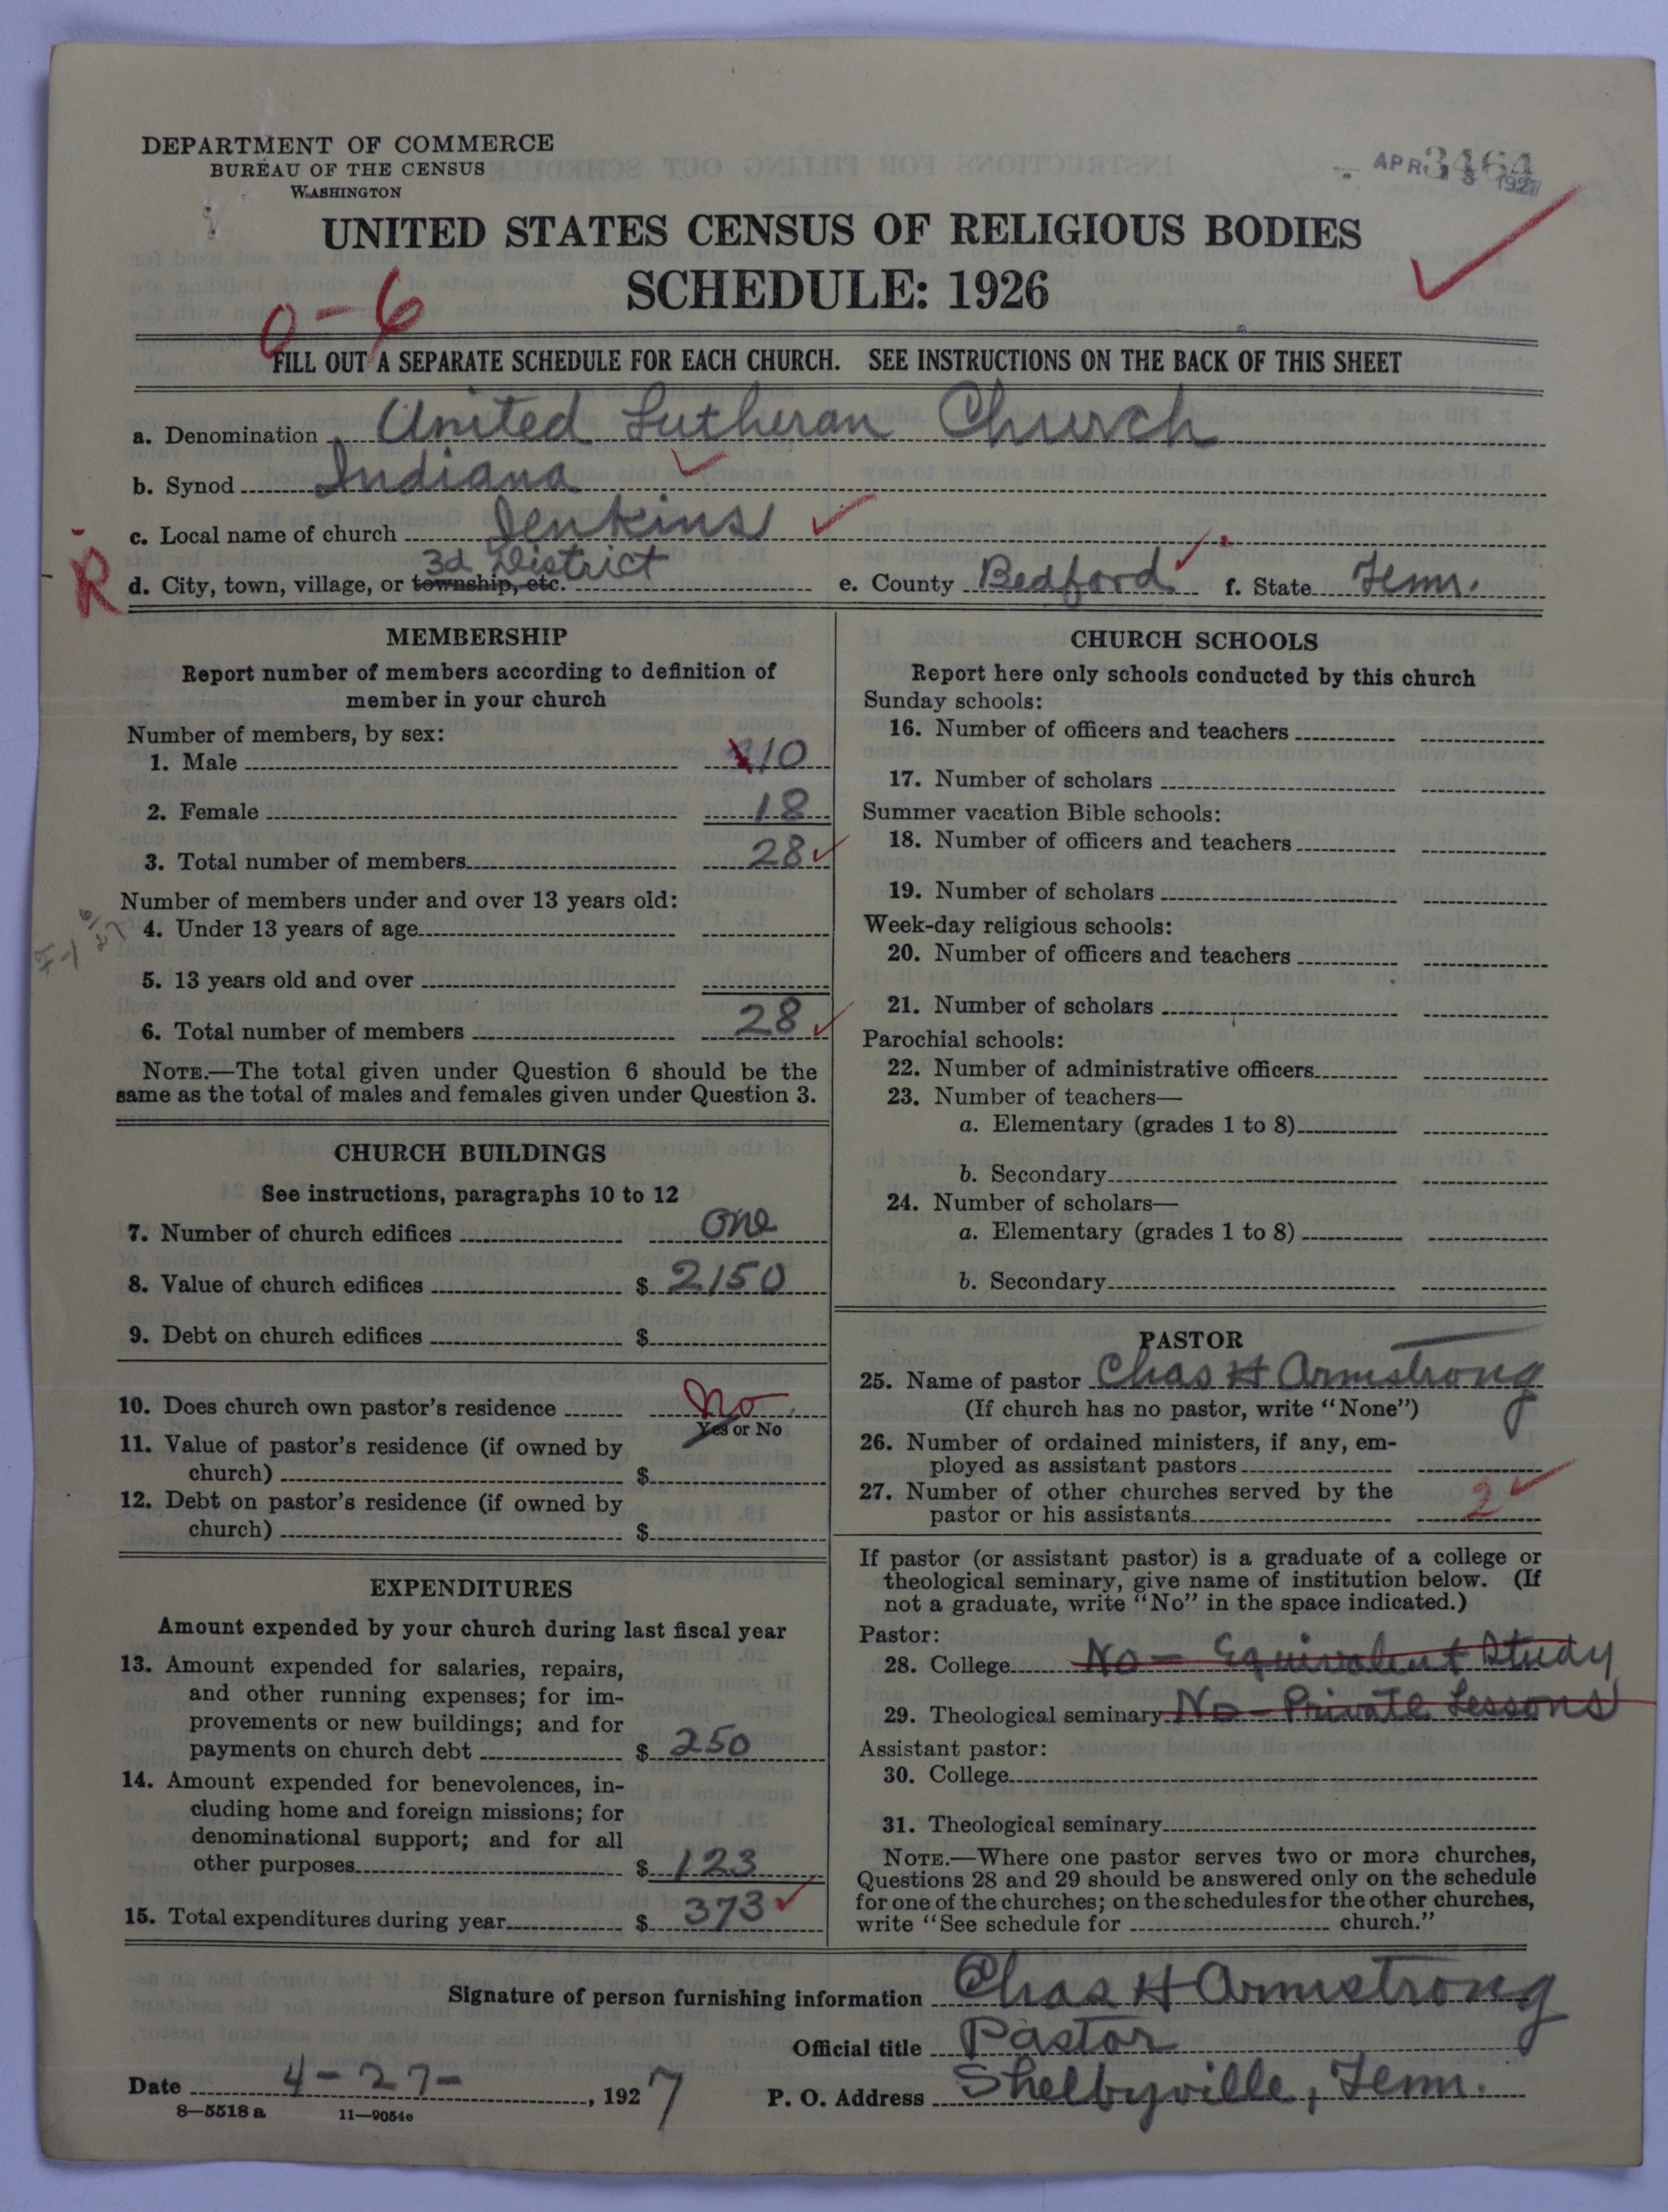 DEPARTMENT OF COMMERCE
BUREAU OF THE CENSUS
WASHINGTON
3464
APR 1927
UNITED STATES CENSUS OF RELIGIOUS BODIES
SCHEDULE: 1926
0-6
FILL OUT A SEPARATE SCHEDULE FOR EACH CHURCH. SEE INSTRUCTIONS ON THE BACK OF THIS SHEET
a. Denomination United Lutheran Church
b. Synod Indiana
c. Local name of church Jenkins
R
d. City, town, village, or township, etc. 3d District e. County Bedford f. State Tenn.
MEMBERSHIP
Report number of members according to definition of
member in your church
Number of members, by sex:
1. Male 10
2. Female 18
3. Total number of members 28
Number of members under and over 13 years old:
4. Under 13 years of age
5. 13 years old and over
6. Total number of members 28
NOTE.—The total given under Question 6 should be the
same as the total of males and females given under Question 3.
CHURCH BUILDINGS
See instructions, paragraphs 10 to 12
7. Number of church edifices one
8. Value of church edifices $ 2150
9. Debt on church edifices $
10. Does church own pastor's residence No
Yes or No
11. Value of pastor's residence (if owned by
church) $
12. Debt on pastor's residence (if owned by
church) $
EXPENDITURES
Amount expended by your church during last fiscal year
13. Amount expended for salaries, repairs,
and other running expenses; for im-
provements or new buildings; and for
payments on church debt $ 250
14. Amount expended for benevolences, in-
cluding home and foreign missions; for
denominational support; and for all
other purposes $ 123
15. Total expenditures during year $ 373
CHURCH SCHOOLS
Report here only schools conducted by this church
Sunday schools:
16. Number of officers and teachers
17. Number of scholars
Summer vacation Bible schools:
18. Number of officers and teachers
19. Number of scholars
Week-day religious schools:
20. Number of officers and teachers
21. Number of scholars
Parochial schools:
22. Number of administrative officers
23. Number of teachers—
a. Elementary (grades 1 to 8)
b. Secondary
24. Number of scholars—
a. Elementary (grades 1 to 8)
b. Secondary
PASTOR
25. Name of pastor Chas H Armstrong
(If church has no pastor, write "None")
26. Number of ordained ministers, if any, em-
ployed as assistant pastors
27. Number of other churches served by the
pastor or his assistants 2
If pastor (or assistant pastor) is a graduate of a college or
theological seminary, give name of institution below. (If
not a graduate, write "No" in the space indicated.)
Pastor:
28. College No - Equivalent Study
29. Theological seminary No - Private Lessons
Assistant pastor:
30. College
31. Theological seminary
NOTE.—Where one pastor serves two or more churches,
Questions 28 and 29 should be answered only on the schedule
for one of the churches; on the schedules for the other churches,
write "See schedule for church."
Signature of person furnishing information Chas H Armstrong
Official title Pastor
Date 4-27-, 1927 P. O. Address Shelbyville, Tenn.
8—5518 a 11—9054e